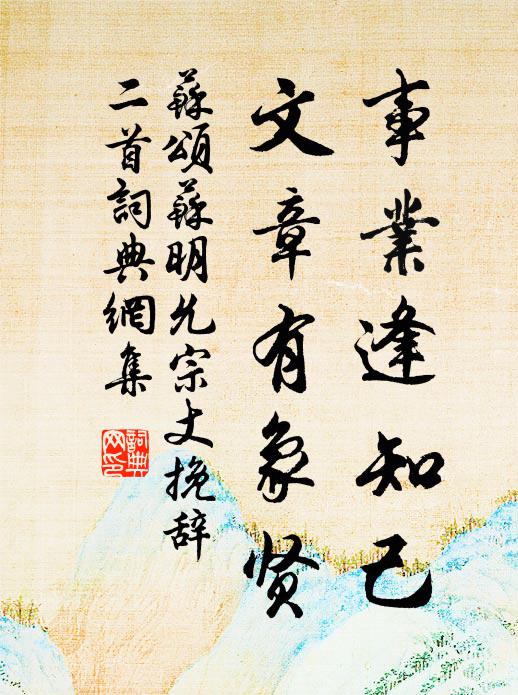 事業逢知己
文章有象贤
蘇頌蘇明允宗丈挽辞
二首詞典網集
詞典
网印